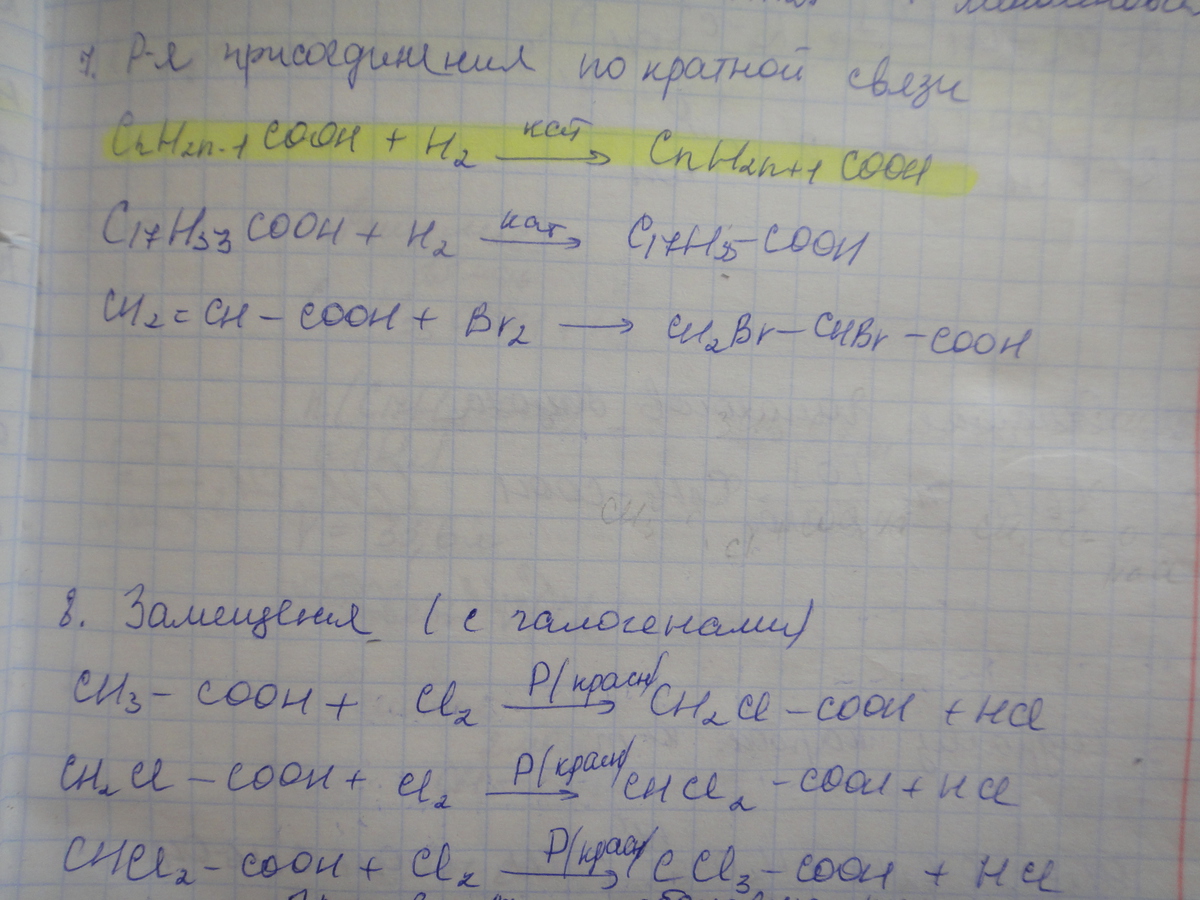 7. Р-я присоединения по кратной связи
CnH2n-1 COOH + H2 кат → CnH2n+1 COOH
C17H33 COOH + H2 кат → C17H35-COOH
CH2=CH-COOH + Br2 → CH2Br-CHBr-COOH
8. Замещения (с галогенами)
CH3-COOH + Cl2 P(красн) → CH2Cl-COOH + HCl
CH2Cl-COOH + Cl2 P(красн) → CHCl2-COOH + HCl
CHCl2-COOH + Cl2 P(красн) → CCl3-COOH + HCl